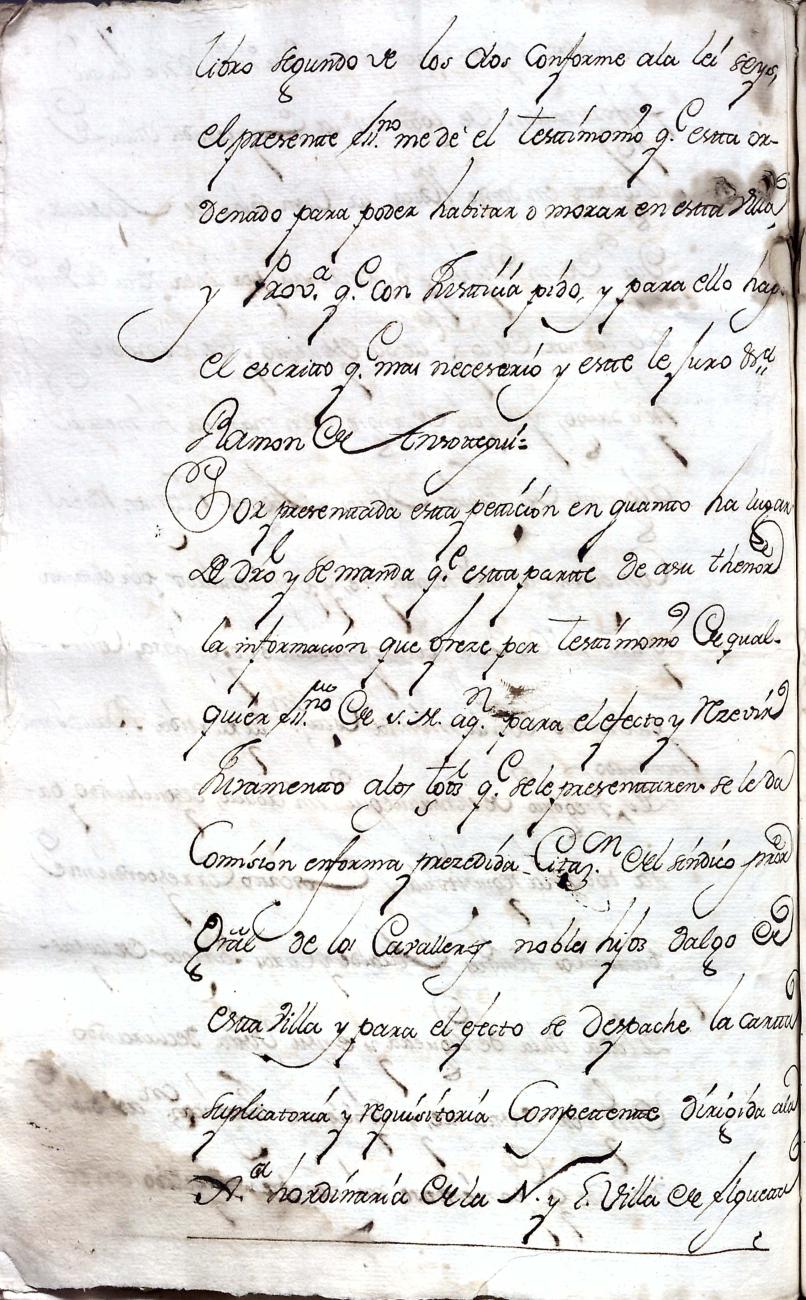 libro segundo de los dos Conforme ala lei seys,
el presente ss.no me de el testtimonio q.e estta or-
denado para poder habitar o morar en estta Villa
y Prov.a q.e con Justticia pido, y para ello hag.
el escritto q.e mas necesario y estte le juro &.a
Ramon de Ansorregui=
Por presenttada estta pettición en quantto ha lugar
de dro y se manda q.e estta partte de asu thenor
la información que ofreze por testtimonio de qual-
quier ss.no de S. M. aq.n para el efecto y rrzevir
Juramentto alos tgos q.e sele presenttaren se le da
Comisión enforma prezedida Citaz.n del síndico pror
Gnãl de los Cavalleros nobles hijos dalgo de
estta Villa y para el efecto se despache la cartta
suplicatoria y requisitoria Compettente dirigida ala
Jus.a hordinaria de la N. y L. Villa de Elgueta